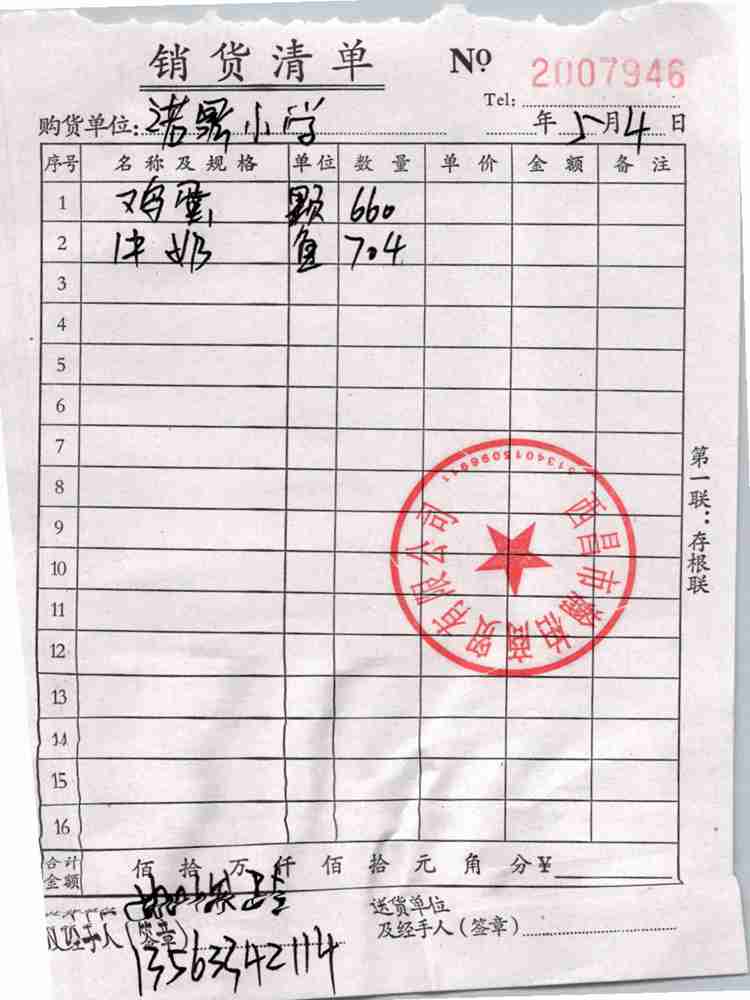 销货清单 Nº 2007946
Tel:
购货单位: 小学 年 5月4日
序号 名称及规格 单位 数量 单价 金额 备注
1 鸡蛋 颗 660
2 牛奶 704
3
4
5
6
7
8
9
10
11
12
13
14
15
16
第一联:存根联
西昌市 柏商贸有限公司
合计金额 佰拾万仟佰拾元角分¥
送货单位
及经手人(签章) 及经手人(签章)
13563342114